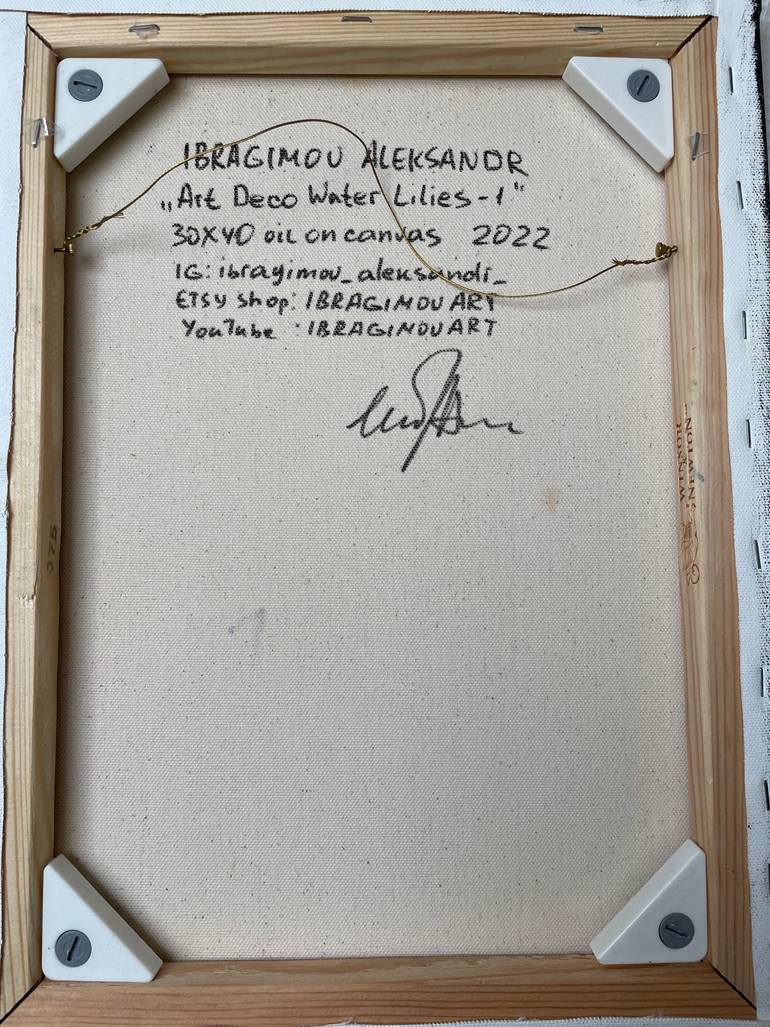 IBRAGIMOV ALEKSANDR
„Art Deco Water Lilies-1"
30X40 oil on canvas 2022
IG: ibragimov_aleksandr_
Etsy shop: IBRAGIMOV ART
YouTube : IBRAGIMOV ART
WINSOR
& NEWTON